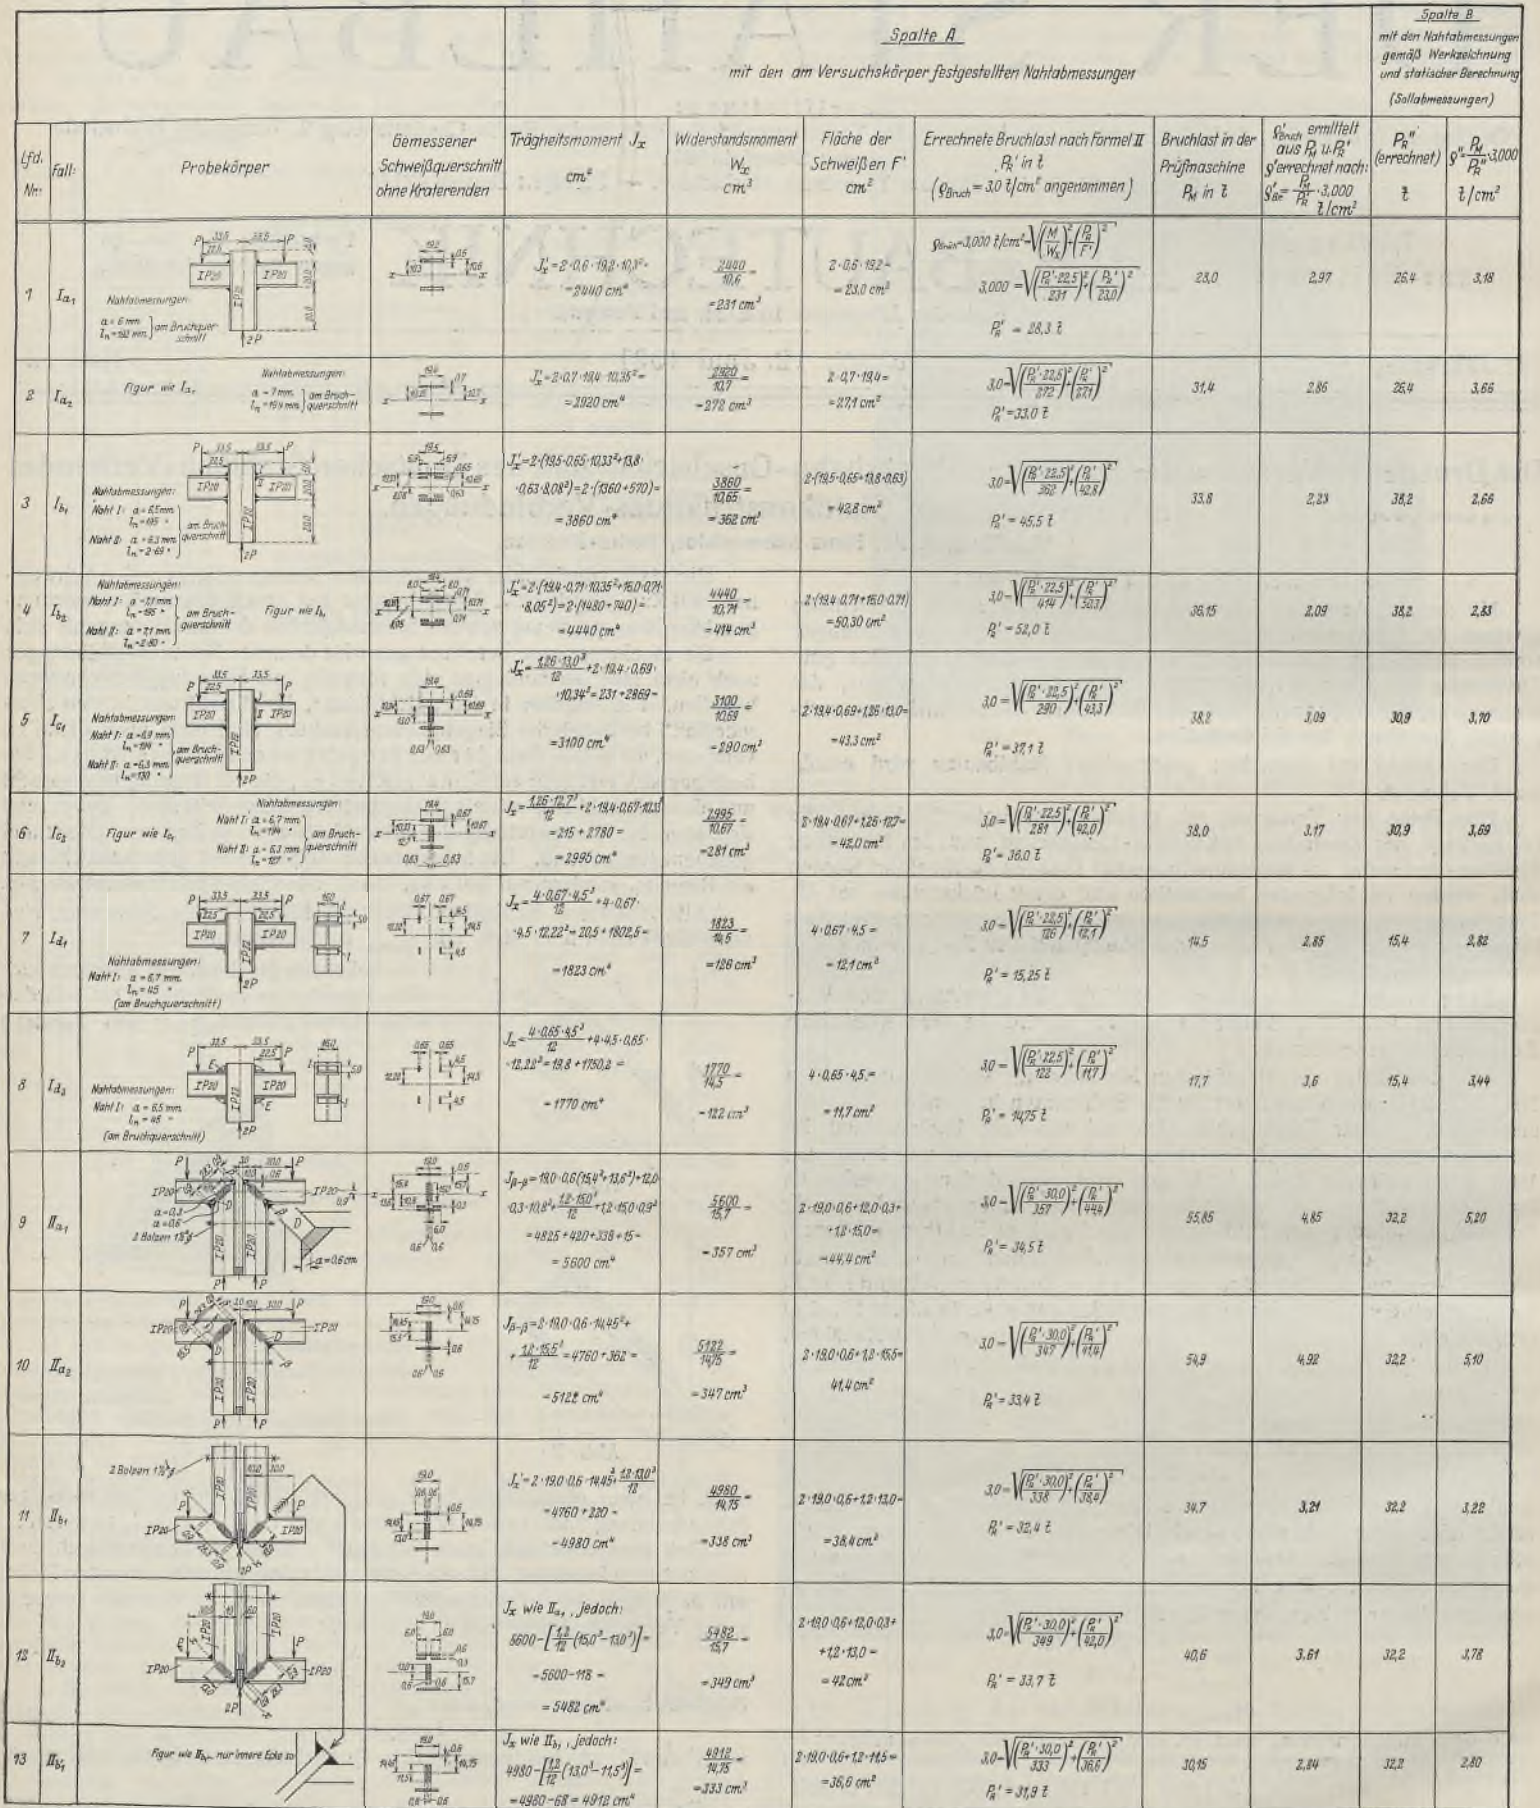 Spalte A
mit den am Versuchskörper festgestellten Nahtabmessungen
Spalte B
mit den Nahtabmessungen
gemäß Werkzeichnung
und statischer Berechnung
(Sollabmessungen)
Lfd. Nr:
Fall:
Probekörper
Gemessener
Schweißquerschnitt
ohne Kraterenden
Trägheitsmoment Jx
cm⁴
Widerstandsmoment
Wx
cm³
Fläche der
Schweißen F'
cm²
Errechnete Bruchlast nach Formel II
PR' in t
(ρBruch = 3,0 t/cm² angenommen)
Bruchlast in der
Prüfmaschine
PM in t
ρ'Bruch ermittelt
aus PM u. PR'
ρ' errechnet nach:
ρ'Br = PM/PR' · 3,000
t/cm²
PR''
(errechnet)
t
ρ'' = PM/PR'' · 3,000
t/cm²
1
Ia₁
P 33,5 33,5 P
22,5
IP20 IP22 IP20
2P
Nahtabmessungen:
a = 6 mm
ln = 192 mm
am Bruchquerschnitt
19,2
0,6
10,3
10,6
Jx' = 2·0,6·19,2·10,3² =
= 2440 cm⁴
2440/10,6 =
= 231 cm³
2·0,6·19,2 =
= 23,0 cm²
ρBruch = 3,000 t/cm² = √((M/Wx)² + (PR'/F')²)
3,000 = √((PR'·22,5/231)² + (PR'/23,0)²)
PR' = 28,3 t
23,0
2,97
26,4
3,18
2
Ia₂
Figur wie Ia₁
Nahtabmessungen:
a = 7 mm
ln = 194 mm
am Bruchquerschnitt
0,7
10,35
10,7
Jx' = 2·0,7·19,4·10,35² =
= 2920 cm⁴
2920/10,7 =
= 272 cm³
2·0,7·19,4 =
= 27,1 cm²
3,0 = √((PR'·22,5/272)² + (PR'/27,1)²)
PR' = 33,0 t
31,4
2,86
26,4
3,66
3
Ib₁
P 33,5 33,5 P
22,5
IP20 IP22 IP20
2P
Nahtabmessungen:
Naht I: a = 6,5 mm
ln = 195 "
Naht II: a = 6,3 mm
ln = 2·69 "
am Bruchquerschnitt
19,5
6,9 6,9
0,65
10,33
10,65
8,08
0,63
Jx' = 2·(19,5·0,65·10,33² + 13,8·
·0,63·8,08²) = 2·(1360+570) =
= 3860 cm⁴
3860/10,65 =
= 362 cm³
2·(19,5·0,65+13,8·0,63)
= 42,8 cm²
3,0 = √((PR'·22,5/362)² + (PR'/42,8)²)
PR' = 45,5 t
33,8
2,23
38,2
2,66
4
Ib₂
Nahtabmessungen:
Naht I: a = 7,1 mm
Naht II: a = 7,1 mm
ln = 2·80 "
am Bruchquerschnitt
Figur wie Ib₁
8,0 19,4 8,0
0,71
10,71
8,05
0,71
Jx' = 2·(19,4·0,71·10,35² + 16,0·0,71·
·8,05²) = 2·(1480+740) =
= 4440 cm⁴
4440/10,71 =
= 414 cm³
2·(19,4·0,71+16,0·0,71)
= 50,30 cm²
3,0 = √((PR'·22,5/414)² + (PR'/50,3)²)
PR' = 52,0 t
36,15
2,09
38,2
2,83
5
Ic₁
33,5 33,5
P 22,5 P
IP20 IP22 IP20
2P
Nahtabmessungen:
Naht I: a = 6,9 mm
ln = 194 "
Naht II: a = 6,3 mm
ln = 130 "
am Bruchquerschnitt
19,4
0,69
10,34
10,69
13,0
0,63 0,63
Jx' = 1,26·13,0³/12 + 2·19,4·0,69·
·10,34² = 231+2869 =
= 3100 cm⁴
3100/10,69 =
= 290 cm³
2·19,4·0,69+1,26·13,0 =
= 43,3 cm²
3,0 = √((PR'·22,5/290)² + (PR'/43,3)²)
PR' = 37,1 t
38,2
3,09
30,9
3,70
6
Ic₂
Figur wie Ic₁
Nahtabmessungen:
Naht I: a = 6,7 mm
ln = 194 "
Naht II: a = 6,3 mm
ln = 127 "
am Bruchquerschnitt
19,4
0,67
10,33
10,67
12,7
0,63 0,63
Jx = 1,26·12,7³/12 + 2·19,4·0,67·10,33²
= 215 + 2780 =
= 2995 cm⁴
2995/10,67 =
= 281 cm³
2·19,4·0,67+1,26·12,7 =
= 42,0 cm²
3,0 = √((PR'·22,5/281)² + (PR'/42,0)²)
PR' = 36,0 t
38,0
3,17
30,9
3,69
7
Id₁
33,5 33,5
P 22,5 22,5 P
IP20 IP22 IP20
2P
16,0
5,0
Nahtabmessungen:
Naht I: a = 6,7 mm
ln = 45 "
(am Bruchquerschnitt)
0,67 0,67
4,5
12,22
14,5
4,5
Jx = 4·0,67·4,5³/12 + 4·0,67·
·4,5·12,22² = 20,5 + 1802,5 =
= 1823 cm⁴
1823/14,5 =
= 126 cm³
4·0,67·4,5 =
= 12,1 cm²
3,0 = √((PR'·22,5/126)² + (PR'/12,1)²)
PR' = 15,25 t
14,5
2,85
15,4
2,82
8
Id₂
33,5 33,5
P 22,5 P
E
IP20 IP22 IP20
E
2P
16,0
5,0
Nahtabmessungen:
Naht I: a = 6,5 mm
ln = 45 "
(am Bruchquerschnitt)
0,65 0,65
4,5
12,22
14,5
4,5
Jx = 4·0,65·4,5³/12 + 4·4,5·0,65·
·12,22² = 19,8 + 1750,2 =
= 1770 cm⁴
1770/14,5 =
= 122 cm³
4·0,65·4,5 =
= 11,7 cm²
3,0 = √((PR'·22,5/122)² + (PR'/11,7)²)
PR' = 14,75 t
17,7
3,6
15,4
3,44
9
IIa₁
P 3,0 30,0 P
10,0
0,6
IP20 IP20
0,9
a = 0,3
a = 0,6
2 Bolzen 1⅛"ø
D
a = 0,6 cm
IP20 IP20
P P
19,0
0,6
15,4
15,7
13,6
10,8
15,0
0,3
6,0
0,6 0,6
Jβ-β = 19,0·0,6(15,4²+13,6²)+12,0·
·0,3·10,8² + 1,2·15,0³/12 + 1,2·15,0·0,9²
= 4825+420+338+15 =
= 5600 cm⁴
5600/15,7 =
= 357 cm³
2·19,0·0,6+12,0·0,3+
+1,2·15,0 =
= 44,4 cm²
3,0 = √((PR'·30,0/357)² + (PR'/44,4)²)
PR' = 34,5 t
55,85
4,85
32,2
5,20
10
IIa₂
P 3,0 10,0 30,0 P
IP20 IP20
15,5
D D
IP20 IP20
P P
19,0
0,6
14,45
14,75
15,5
0,6
0,6 0,6
Jβ-β = 2·19,0·0,6·14,45² +
+ 1,2·15,5³/12 = 4760+362 =
= 5122 cm⁴
5122/14,75 =
= 347 cm³
2·19,0·0,6+1,2·15,5 =
41,4 cm²
3,0 = √((PR'·30,0/347)² + (PR'/41,4)²)
PR' = 33,4 t
54,9
4,92
32,2
5,10
11
IIb₁
2 Bolzen 1⅛"ø
10,0 30,0
P P
IP20 IP20
IP20 IP20
2P
19,0
0,6 0,6
0,6
14,45
14,75
13,0
Jx' = 2·19,0·0,6·14,45² + 1,2·13,0³/12
= 4760+220 =
= 4980 cm⁴
4980/14,75 =
= 338 cm³
2·19,0·0,6+1,2·13,0 =
= 38,4 cm²
3,0 = √((PR'·30,0/338)² + (PR'/38,4)²)
PR' = 32,4 t
34,7
3,21
32,2
3,22
12
IIb₂
P P
IP20 IP20
IP20 IP20
2P
19,0
6,0 6,0
0,6
0,3
13,0
15,7
0,6 0,6
Jx wie IIa₁, jedoch:
5600 − [1,2/12 (15,0³−13,0³)] =
= 5600−118 =
= 5482 cm⁴
5482/15,7 =
= 349 cm³
2·19,0·0,6+12,0·0,3+
+1,2·13,0 =
= 42 cm²
3,0 = √((PR'·30,0/349)² + (PR'/42,0)²)
PR' = 33,7 t
40,6
3,61
32,2
3,78
13
IIb₁'
Figur wie IIb₁, nur innere Ecke so
19,0
0,6
14,45
14,75
11,5
0,6 0,6
Jx wie IIb₁, jedoch:
4980 − [1,2/12 (13,0³−11,5³)] =
= 4980−68 = 4912 cm⁴
4912/14,75 =
= 333 cm³
2·19,0·0,6+1,2·11,5 =
= 36,6 cm²
3,0 = √((PR'·30,0/333)² + (PR'/36,6)²)
PR' = 31,9 t
30,15
2,84
32,2
2,80